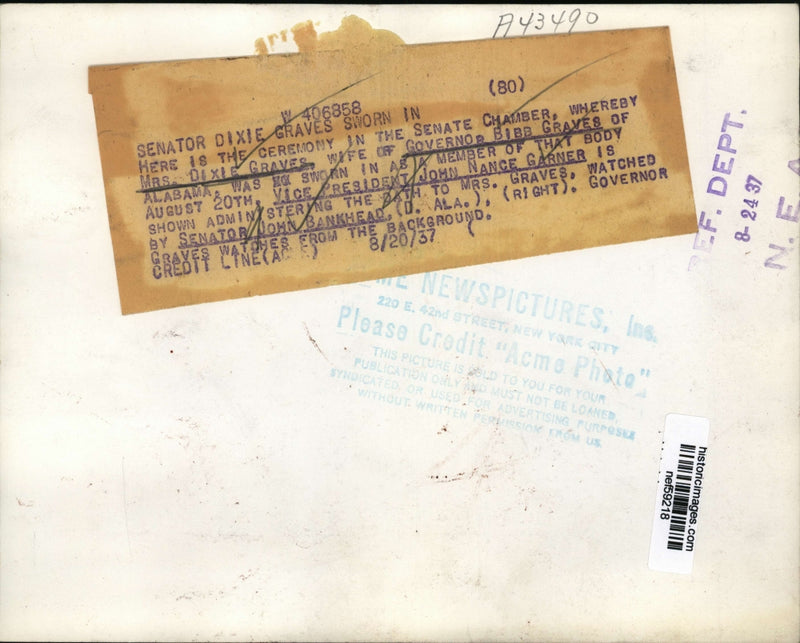 A43490
(80)
W 406858
SENATOR DIXIE GRAVES SWORN IN
HERE IS THE CEREMONY IN THE SENATE CHAMBER, WHEREBY
MRS. DIXIE GRAVES, WIFE OF GOVERNOR BIBB GRAVES OF
ALABAMA, WAS SWORN IN AS MEMBER OF THAT BODY
AUGUST 20TH. VICE PRESIDENT JOHN NANCE GARNER IS
SHOWN ADMINISTERING THE OATH TO MRS. GRAVES, WATCHED
BY SENATOR JOHN BANKHEAD, (D. ALA.), (RIGHT). GOVERNOR
GRAVES WATCHES FROM THE BACKGROUND.
CREDIT LINE (ACME) 8/20/37 (
REF. DEPT.
8-24 37
N. E. A.
ACME NEWSPICTURES, Inc.
220 E. 42nd STREET, NEW YORK CITY
Please Credit "Acme Photo"
THIS PICTURE IS SOLD TO YOU FOR YOUR
PUBLICATION ONLY AND MUST NOT BE LOANED,
SYNDICATED, OR USED FOR ADVERTISING PURPOSES
WITHOUT WRITTEN PERMISSION FROM US.
historicimages.com
nef59218